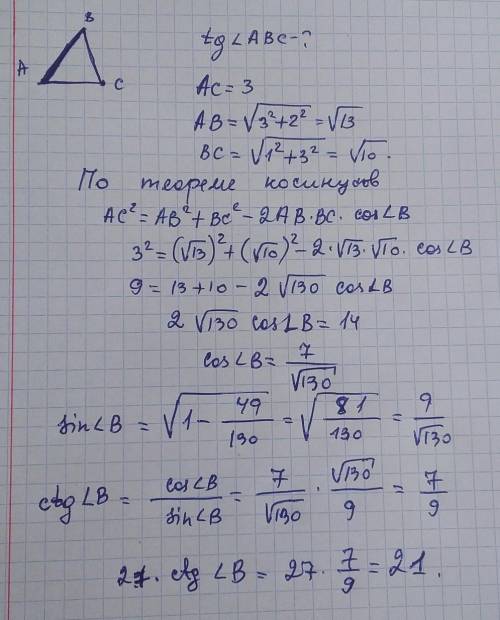 B
tg∠ABC-?
A
C
AC = 3
AB = √(3²+2²) = √13
BC = √(1²+3²) = √10.
По теореме косинусов
AC² = AB² + BC² - 2AB·BC·cos∠B
3² = (√13)² + (√10)² - 2·√13·√10·cos∠B
9 = 13+10 - 2√130 cos∠B
2√130 cos∠B = 14
cos∠B = 7/√130
sin∠B = √(1 - 49/130) = √(81/130) = 9/√130
ctg∠B = cos∠B/sin∠B = 7/√130 · √130/9 = 7/9
27. ctg ∠B = 27· 7/9 = 21.